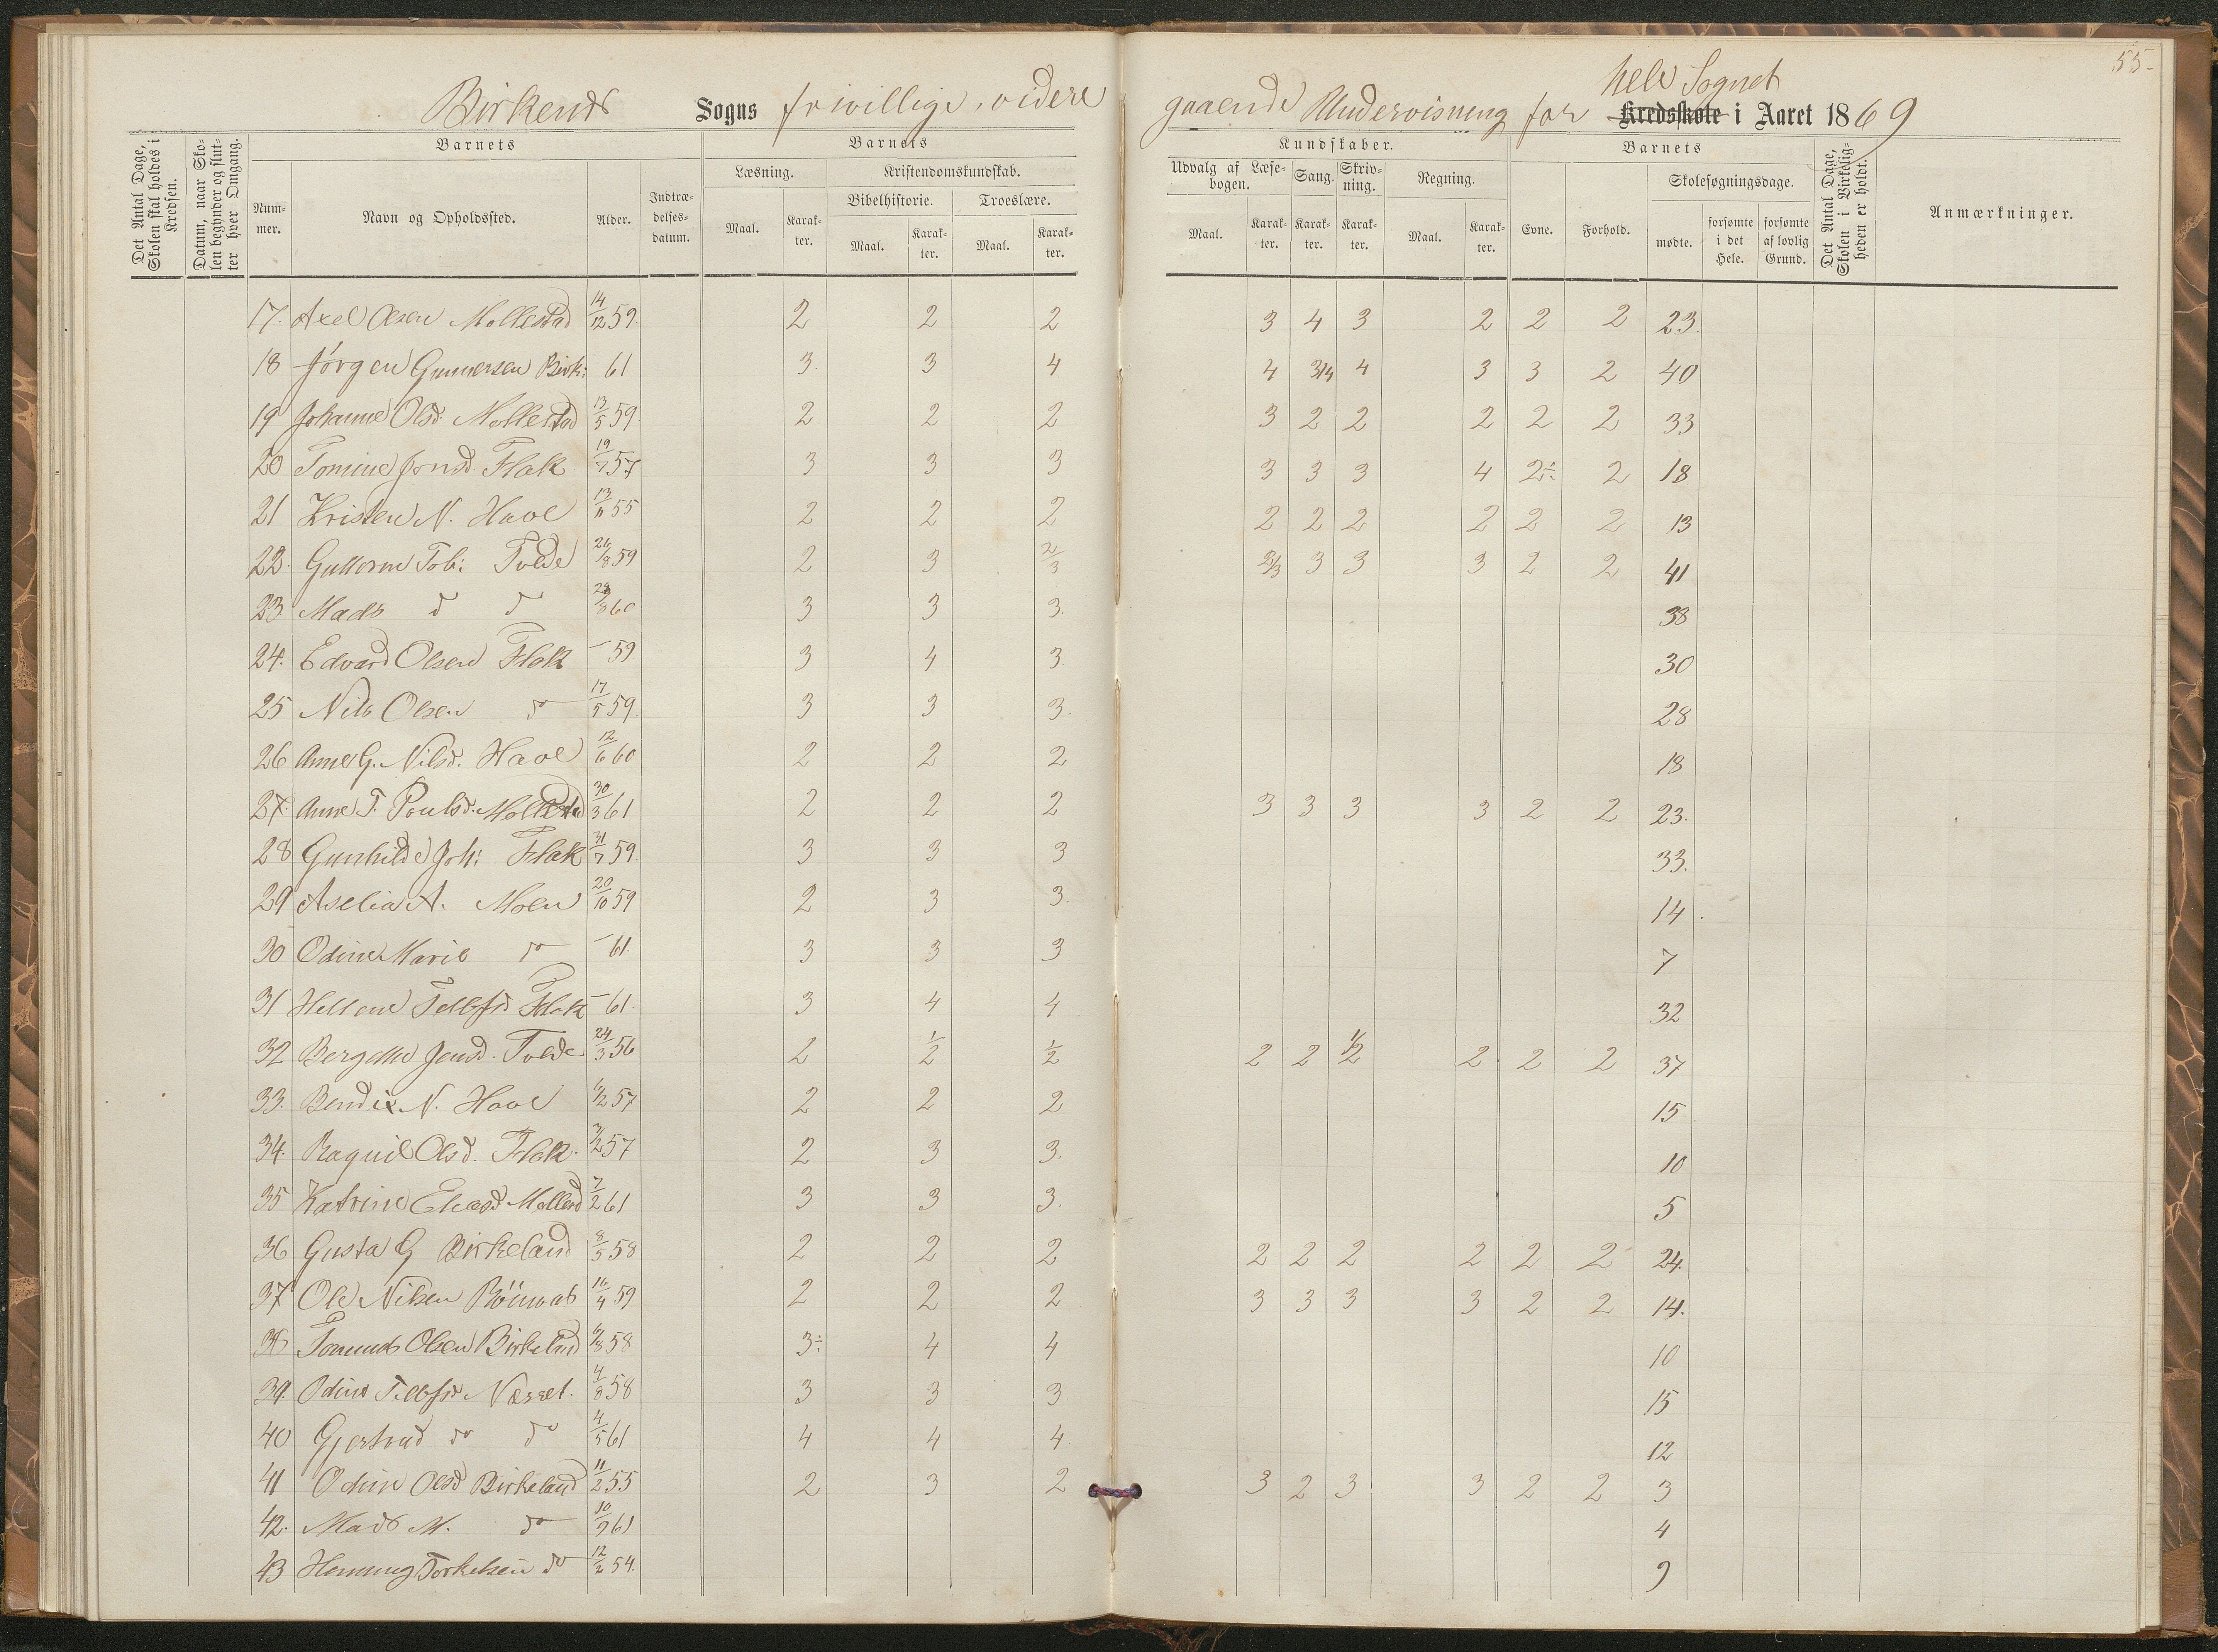 55-
Birkenes Sogns friwillige, videre gaaende Undervisning for hele Sognet Kredsskole i Aaret 1869
Det Antal Dage, Skolen skal holdes i Kredsen.
Datum, naar Skolen begynder og slutter hver Omgang.
Barnets
Nummer.
Navn og Opholdssted.
Alder.
Indtrædelsesdatum.
Barnets
Læsning.
Kristendomskundskab.
Bibelhistorie.
Troeslære.
Maal. Karakter. Maal. Karakter. Maal. Karakter.
Kundskaber.
Udvalg af Læsebogen. Sang. Skrivning. Regning.
Maal. Karakter. Karakter. Karakter. Maal. Karakter.
Barnets
Evne. Forhold.
Skolesøgningsdage.
mødte. forsømte i det Hele. forsømte af lovlig Grund.
Det Antal Dage, Skolen i Virkeligheden er holdt.
Anmærkninger.
17. Axel Olsen Mollestad 14/12 59. 2 2 2 3 4 3 2 2 2 23.
18 Jörgen Gunnersen Birk: 61 3. 3 4 4 3/4 4 3 3 2 40
19 Johanne Olsd: Mollestad 13/5 59 2 2 2 3 2 2 2 2 2 33
20 Tomine Jonsd. Flak 19/7 57 3 3 3 3 3 3 4 2÷ 2 18
21 Kristen N. Have 13/11 55 2 2 2 2 2 2 2 2 2 13
22. Guttorm Tob: Tvede 26/8 59 2 3 2/3 2/3 3 3 3 2 2 41
23. Mads d d 60 3 3 3. 38
24. Edvard Olsen Flak - 59 3 4 3. 30
25 Nils Olsen do 17/5 59. 3 3 3. 28
26 Anne G. Nilsd. Have 12/6 60 2 2 2 18
27. Anne T. Poulsd. Mollestad 30/3 61 2 2 2 3 3 3 3 2 2 23.
28 Gunhilde Joh: Flak 31/7 59. 3 3 3 33.
29 Aselia A. Moen 20/10 59 2 3 3. 14.
30 Odine Marie do - 61 3 3 3 7
31 Hellene Tellefsd Flak - 61. 3 4 4 32
32 Bergette Jensd. Tvede 24/3 56 2 1/2 1/2 2 2 1/2 2 2 2 37
33. Bendix N. Have 6/2 57 2 2 2 15
34. Raguil Olsd. Flak. 3/2 57 2 3 3. 10
35 Katrine Eliasd Mollesd 7/2 61 3 3 3. 5
36 Gusta G Birkeland 8/5 58 2 2 2 2 2 2 2 2 2 24.
37 Ole Nilsen 16/4 59 2 2 2 3 3 3 3 2 2 14.
38 Olsen Birkeland 6/8 58 3÷ 4 4 10
39. Odine Tellefsd Næsset. 4/8 58 3 3 3 15
40 Gjertrud do do 4/5 61 4 4 4. 12
41 Odine Olsd Birkeland 11/2 55 2 3 2 3 2 3 3 2 2 3
42. Mads M. do 10/9 61 4
43 Henning Torkelsen do 12/2 54. 9